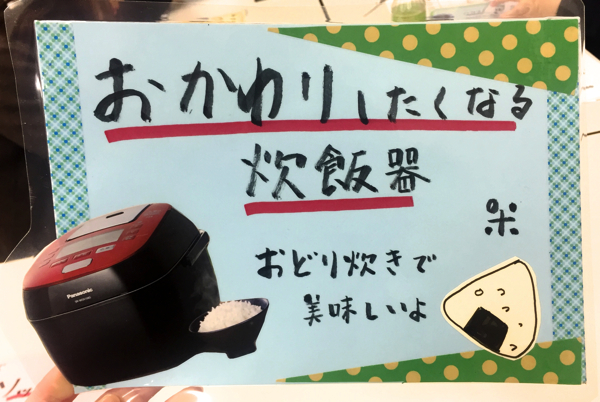 おかわりしたくなる
炊飯器
米
おどり炊きで
美味しいよ
Panasonic